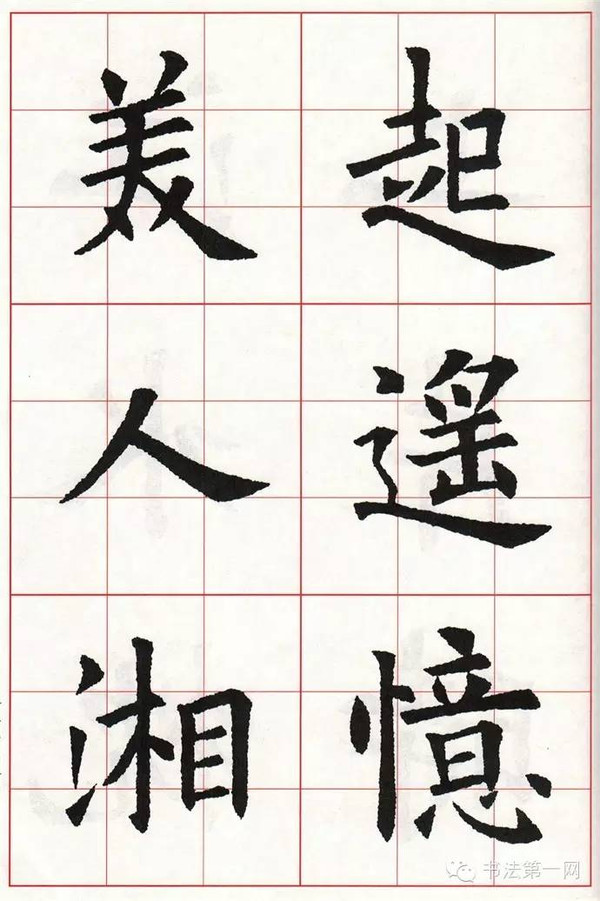 起遥憶
美人湘
书法第一网